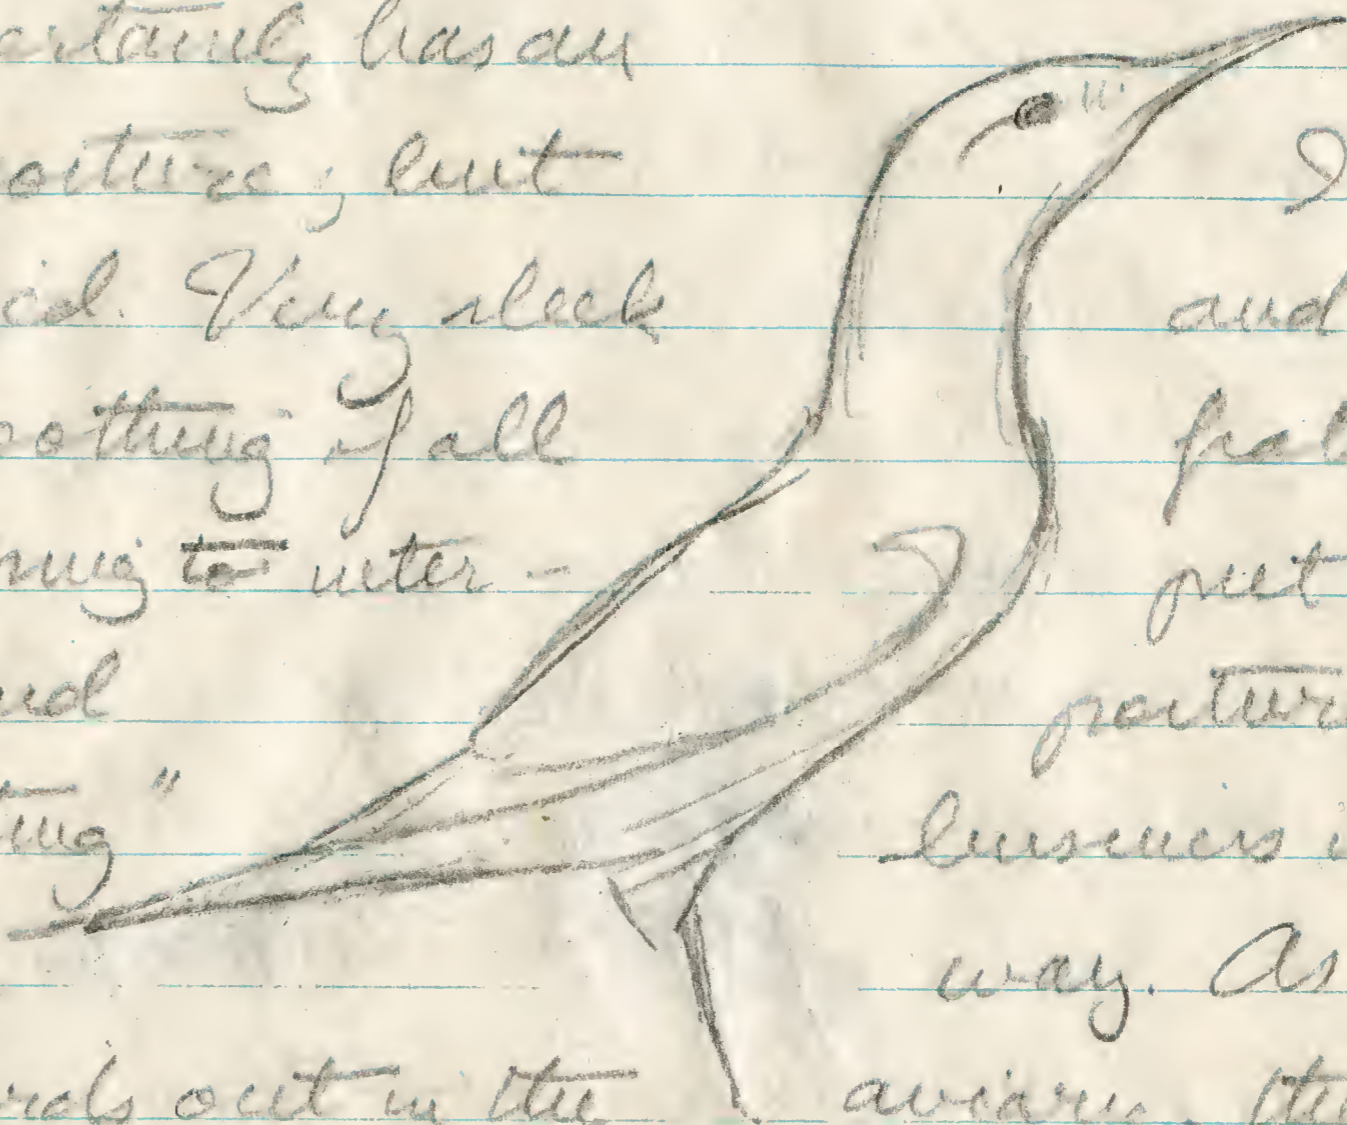 certainly has an
posture, but
Very sleek
nothing if all
to inter-
and
"
birds out in the
I
and
put
posture
business
way. As
aviary, the